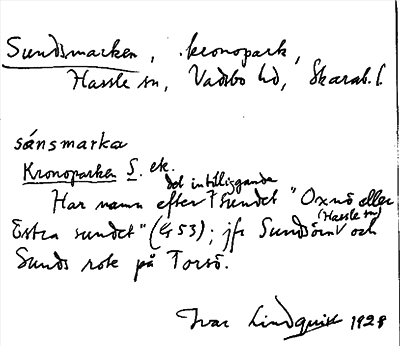 Sundsmarken, kronopark,
Hassle sn, Vadsbo hd, Skarab. l.
sánsmarka
Kronoparken S. ek.
det intilliggande
Har namn efter sundet "Oxnö eller
(Hassle sn)
Estra sundet" (G 53); jfr Sundsörn och
Sunds rote på Torsö.
Ivar Lindquist 1928